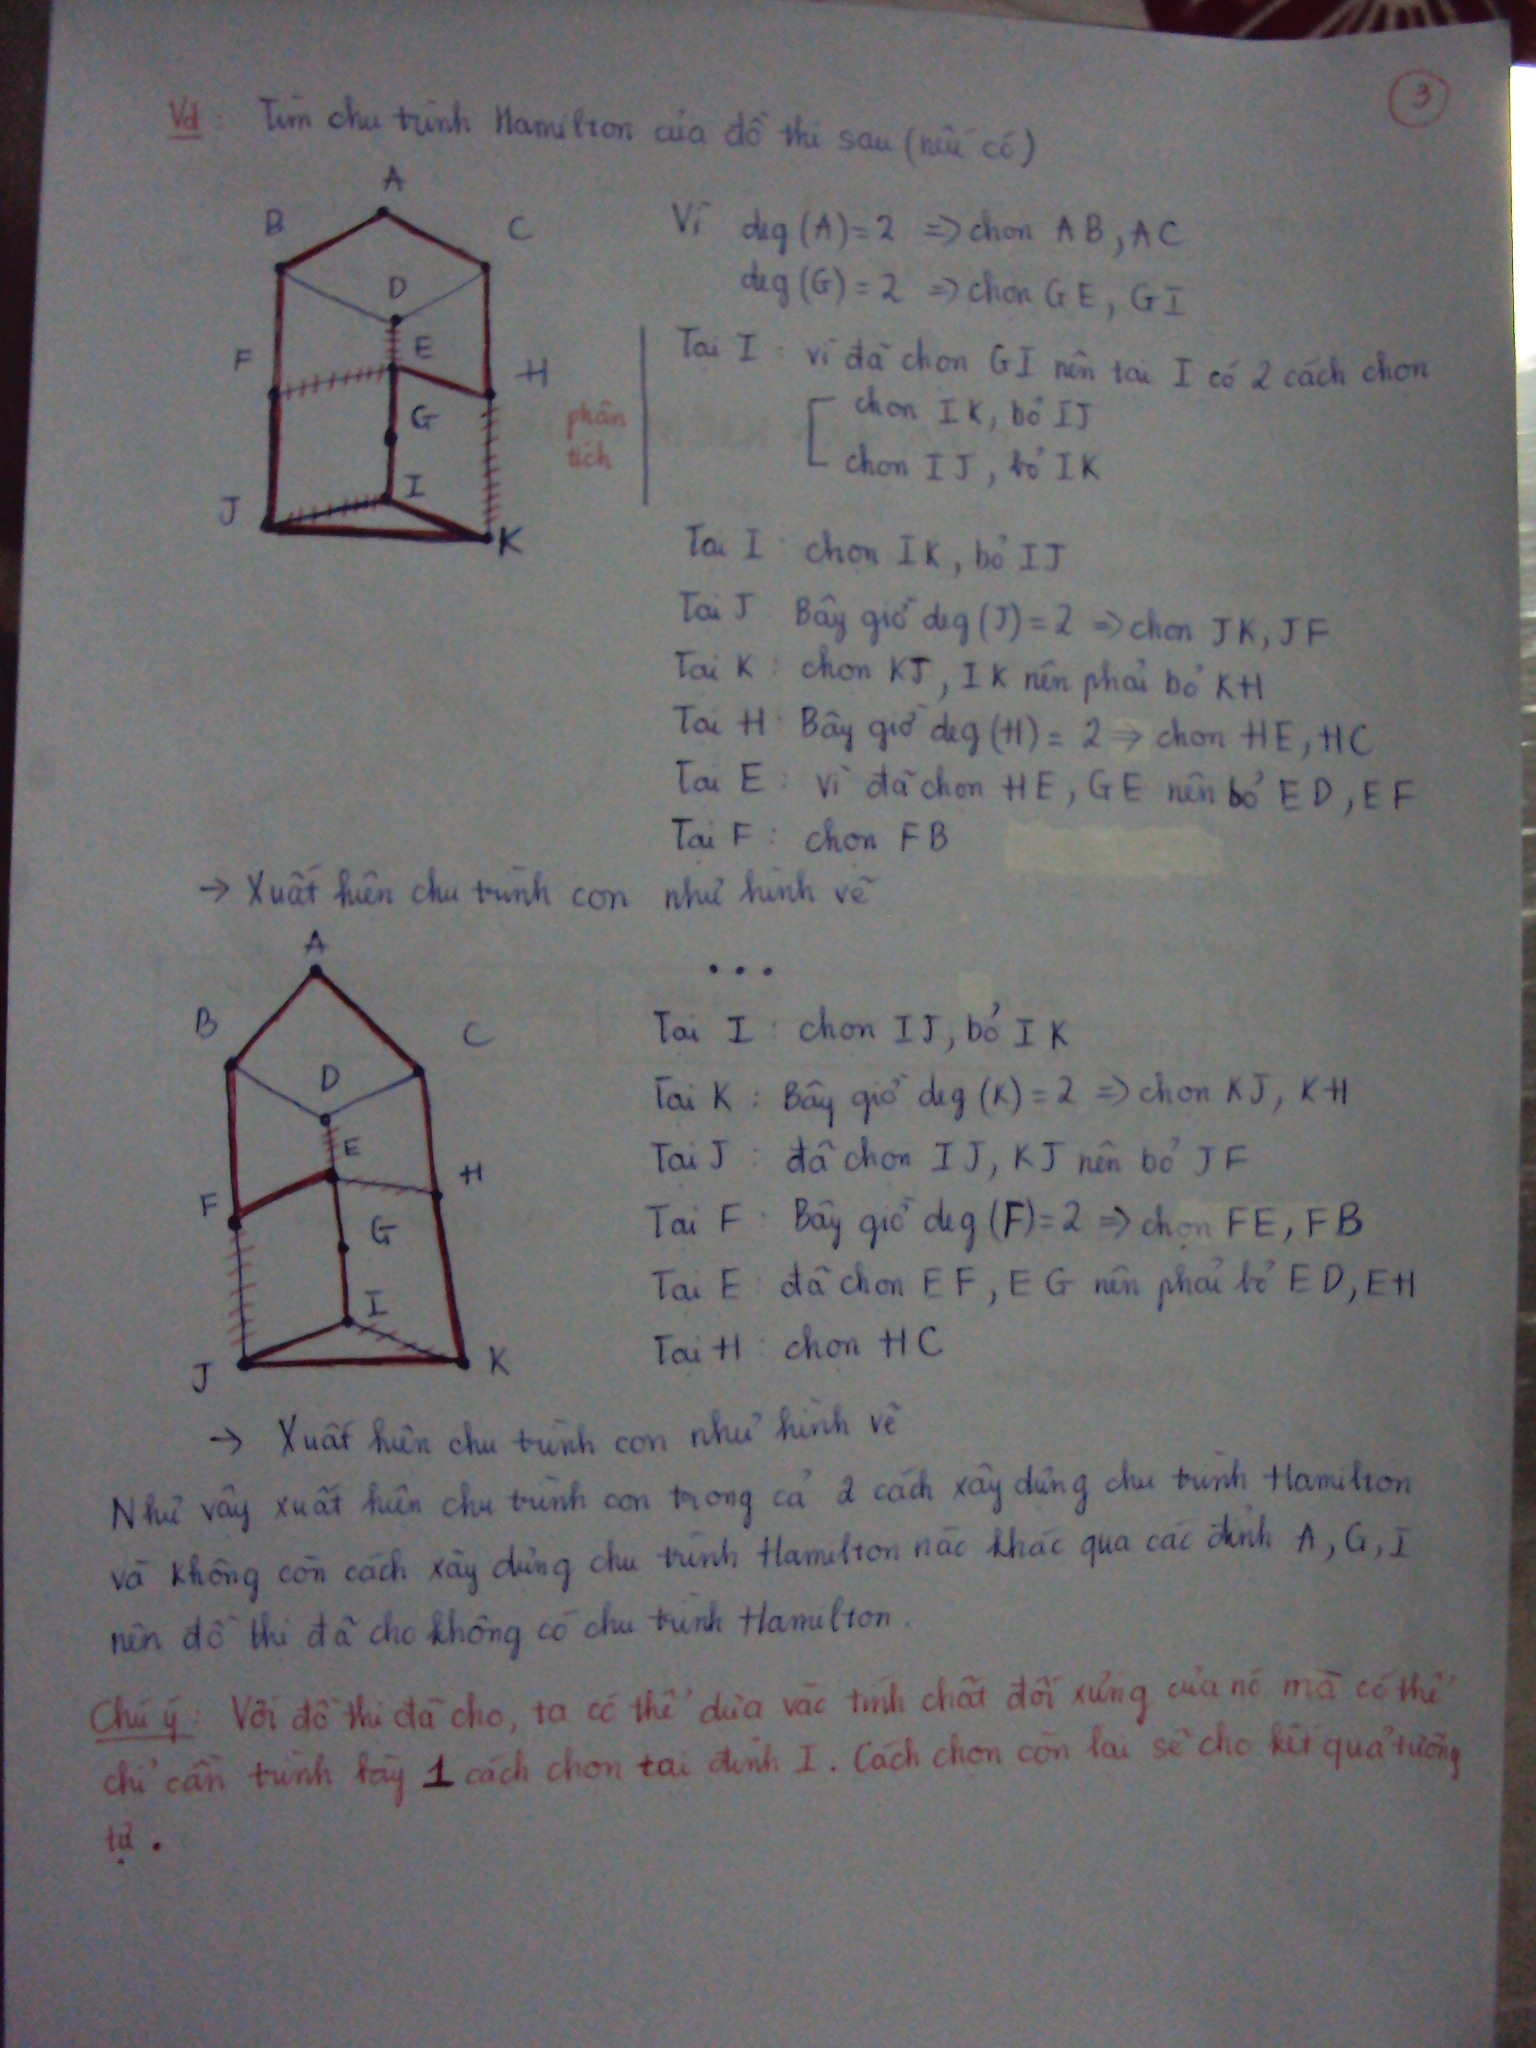 3
Vd : Tìm chu trình Hamilton của đồ thị sau (nếu có)
A
B
C
D
E
F
H
G
I
J
K
Vì deg (A) = 2 => chọn AB, AC
deg (G) = 2 => chọn GE, GI
phân tích
Tại I : vì đã chọn GI nên tại I có 2 cách chọn
chọn IK, bỏ IJ
chọn IJ, bỏ IK
Tại I : chọn IK, bỏ IJ
Tại J : Bây giờ deg (J) = 2 => chọn JK, JF
Tại K : chọn KJ, IK nên phải bỏ KH
Tại H : Bây giờ deg (H) = 2 => chọn HE, HC
Tại E : vì đã chọn HE, GE nên bỏ ED, EF
Tại F : chọn FB
-> Xuất hiện chu trình con như hình vẽ
...
A
B
C
D
E
F
H
G
I
J
K
Tại I : chọn IJ, bỏ IK
Tại K : Bây giờ deg (K) = 2 => chọn KJ, KH
Tại J : đã chọn IJ, KJ nên bỏ JF
Tại F : Bây giờ deg (F) = 2 => chọn FE, FB
Tại E : đã chọn EF, EG nên phải bỏ ED, EH
Tại H : chọn HC
-> Xuất hiện chu trình con như hình vẽ
Như vậy xuất hiện chu trình con trong cả 2 cách xây dựng chu trình Hamilton
và không còn cách xây dựng chu trình Hamilton nào khác qua các đỉnh A, G, I
nên đồ thị đã cho không có chu trình Hamilton.
Chú ý : Với đồ thị đã cho, ta có thể dựa vào tính chất đối xứng của nó mà có thể
chỉ cần trình bày 1 cách chọn tại đỉnh I. Cách chọn còn lại sẽ cho kết quả tương
tự.